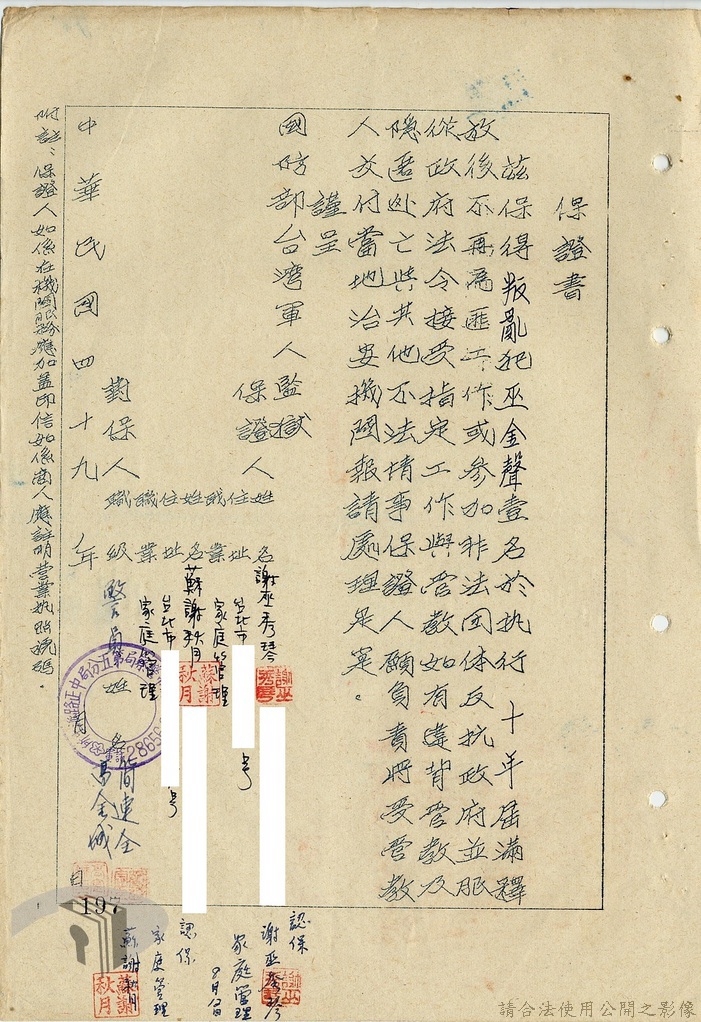 保證書
茲保得叛亂犯巫金聲壹名於执行 十年屆滿釋
放後不再為匪工作或參加非法团体反抗政府並服
從政府法令接受指定工作與管教如有違背管教及
隐匿处亡與其他不法情事保證人願負責將受管教
人交付當地治安機関報請處理是寔。
謹呈
國防部台湾軍人監獄
保證人
姓名謝巫秀琴
住址台北市 号
職業家庭管理
姓名蘇謝秋月
住址台北市 号
職業家庭管理
對保人
職級警員姓名簡連全
高金城
中華民國四十九年 月 日
附註：保證人如係在機関服務應加蓋印信如係商人應註明營業执照號碼。
謝巫秀琴
蘇謝秋月
197
認保
謝巫秀琴
家庭管理
認保
家庭管理
蘇謝秋月
蘇謝秋月
請合法使用公開之影像